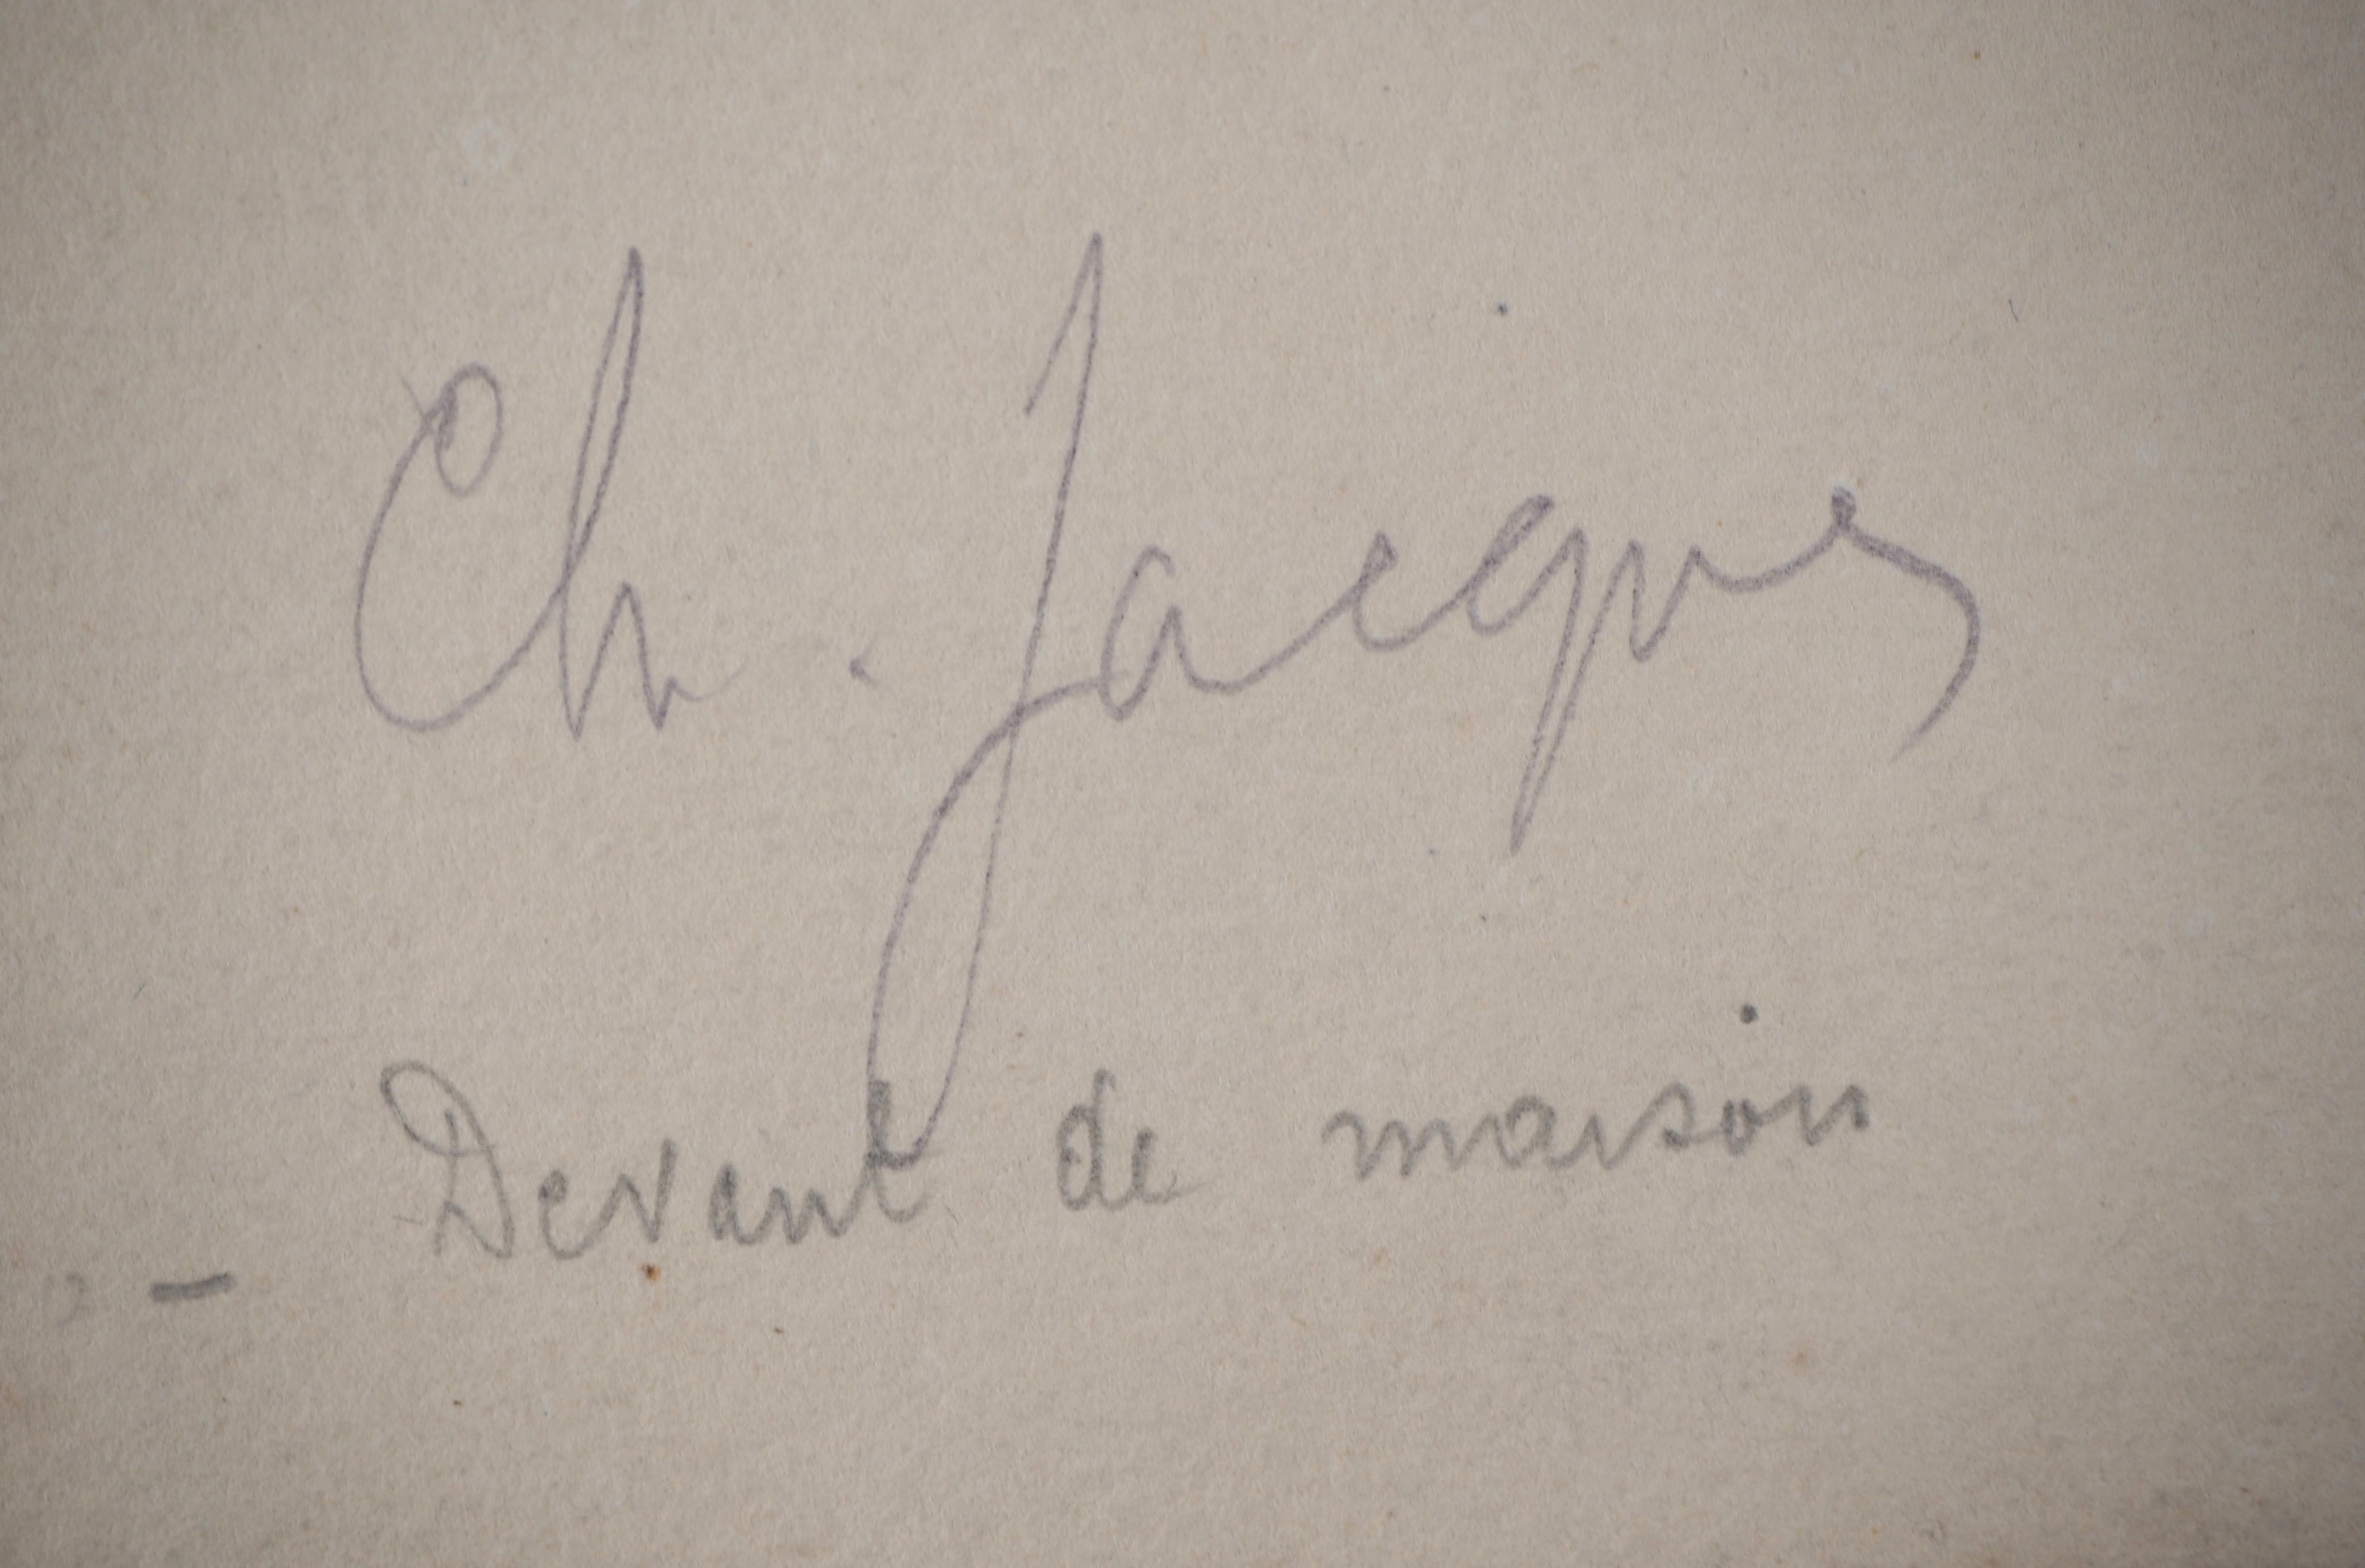 Ch. Jacques
- Devant de maison